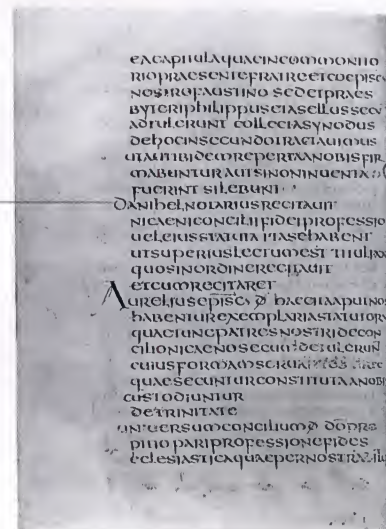 EACAPITULAQUAEINCOMMONITO
RIOPRAESENTEFRATREETCOEPISCO
NOSTROFAUSTINO SEDETPRAES
BYTERIPHILIPPUSETASELLUSSECU
ADTULERUNT COLLECTASYNODUS
DEHOCINSECUNDOTRACTAUIMUS
UTAUTIBIDEMREPERTAANOBISFIR
MABUNTURAUTSINONINUENTA
FUERINT SILEBUNT
DANIHELNOTARIUSRECITAUIT
NICAENICONCILIIFIDEIPROFESSIO
UELEIUSSTATUTA ITASEHABENT
UTSUPERIUSLECTUMEST TITULI
QUOSINORDINERECITAUIT
ETCUMRECITARET
AURELIUSEPISC D HAECITAAPUTNOS
HABENTUREXEMPLARIASTATUTORU
QUAETUNCPATRESNOSTRIDECON
CILIONICAENOSECUMDETULERUN
CUIUSFORMAMSERUANTES
QUAESECUNTURCONSTITUTAANOBI
CUSTODIUNTUR
DETRINITATE
UNIUERSUMCONCILIUMD DOPRO
PITIO PARIPROFESSIONEFIDES
ECLESIASTICAQUAEPERNOSTRA